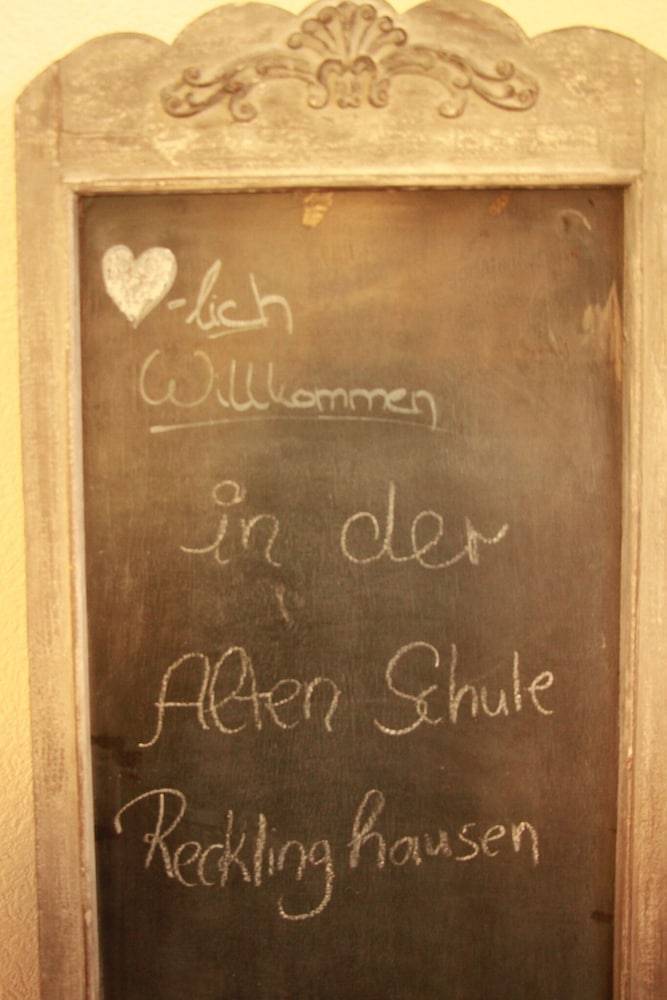 ♥-lich
Willkommen
in der
Alten Schule
Recklinghausen